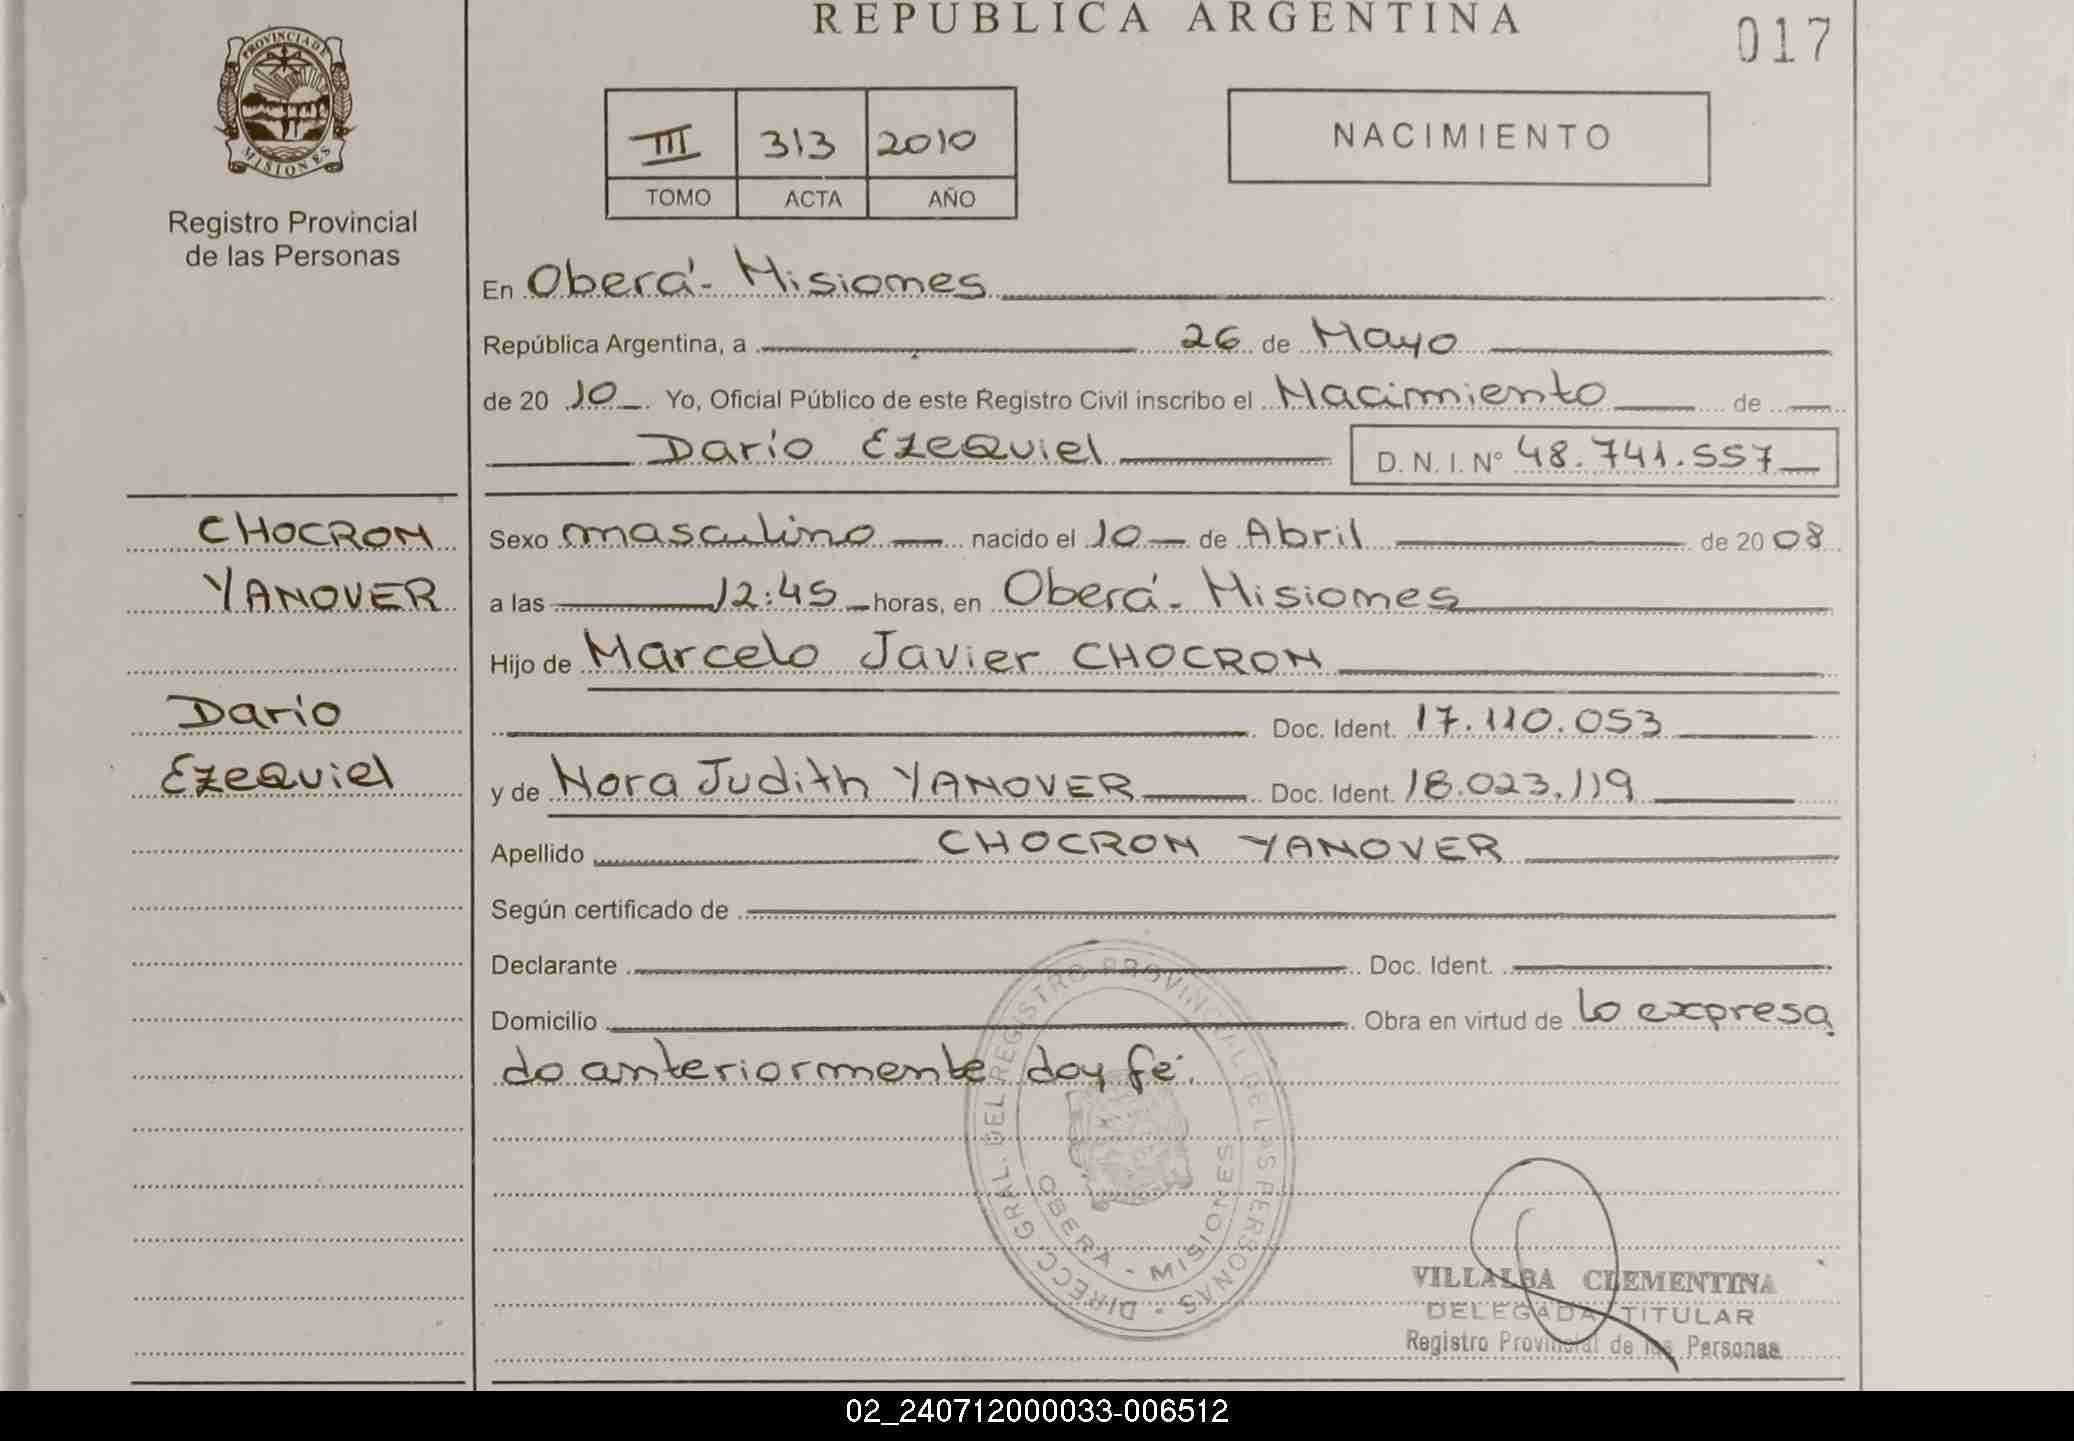 REPUBLICA ARGENTINA
017
PROVINCIA DE
MISIONES
Registro Provincial
de las Personas
III 313 2010
TOMO ACTA AÑO
NACIMIENTO
En Oberá - Misiones
República Argentina, a 26 de Mayo
de 20 10 Yo, Oficial Público de este Registro Civil inscribo el Nacimiento de
Dario Ezequiel D. N. I. N° 48.741.557
CHOCRON
YANOVER
Dario
Ezequiel
Sexo masculino nacido el 10 de Abril de 20 08
a las 12:45 horas, en Oberá - Misiones
Hijo de Marcelo Javier CHOCRON
Doc. Ident. 17.110.053
y de Nora Judith YANOVER Doc. Ident. 18.023.119
Apellido CHOCRON YANOVER
Según certificado de
Declarante Doc. Ident.
Domicilio Obra en virtud de lo expresa
do anteriormente doy fé.
DIRECC. GRAL. DEL REGISTRO PROVINCIAL DE LAS PERSONAS
OBERA - MISIONES
VILLALBA CLEMENTINA
DELEGADA TITULAR
Registro Provincial de las Personas
02_240712000033-006512